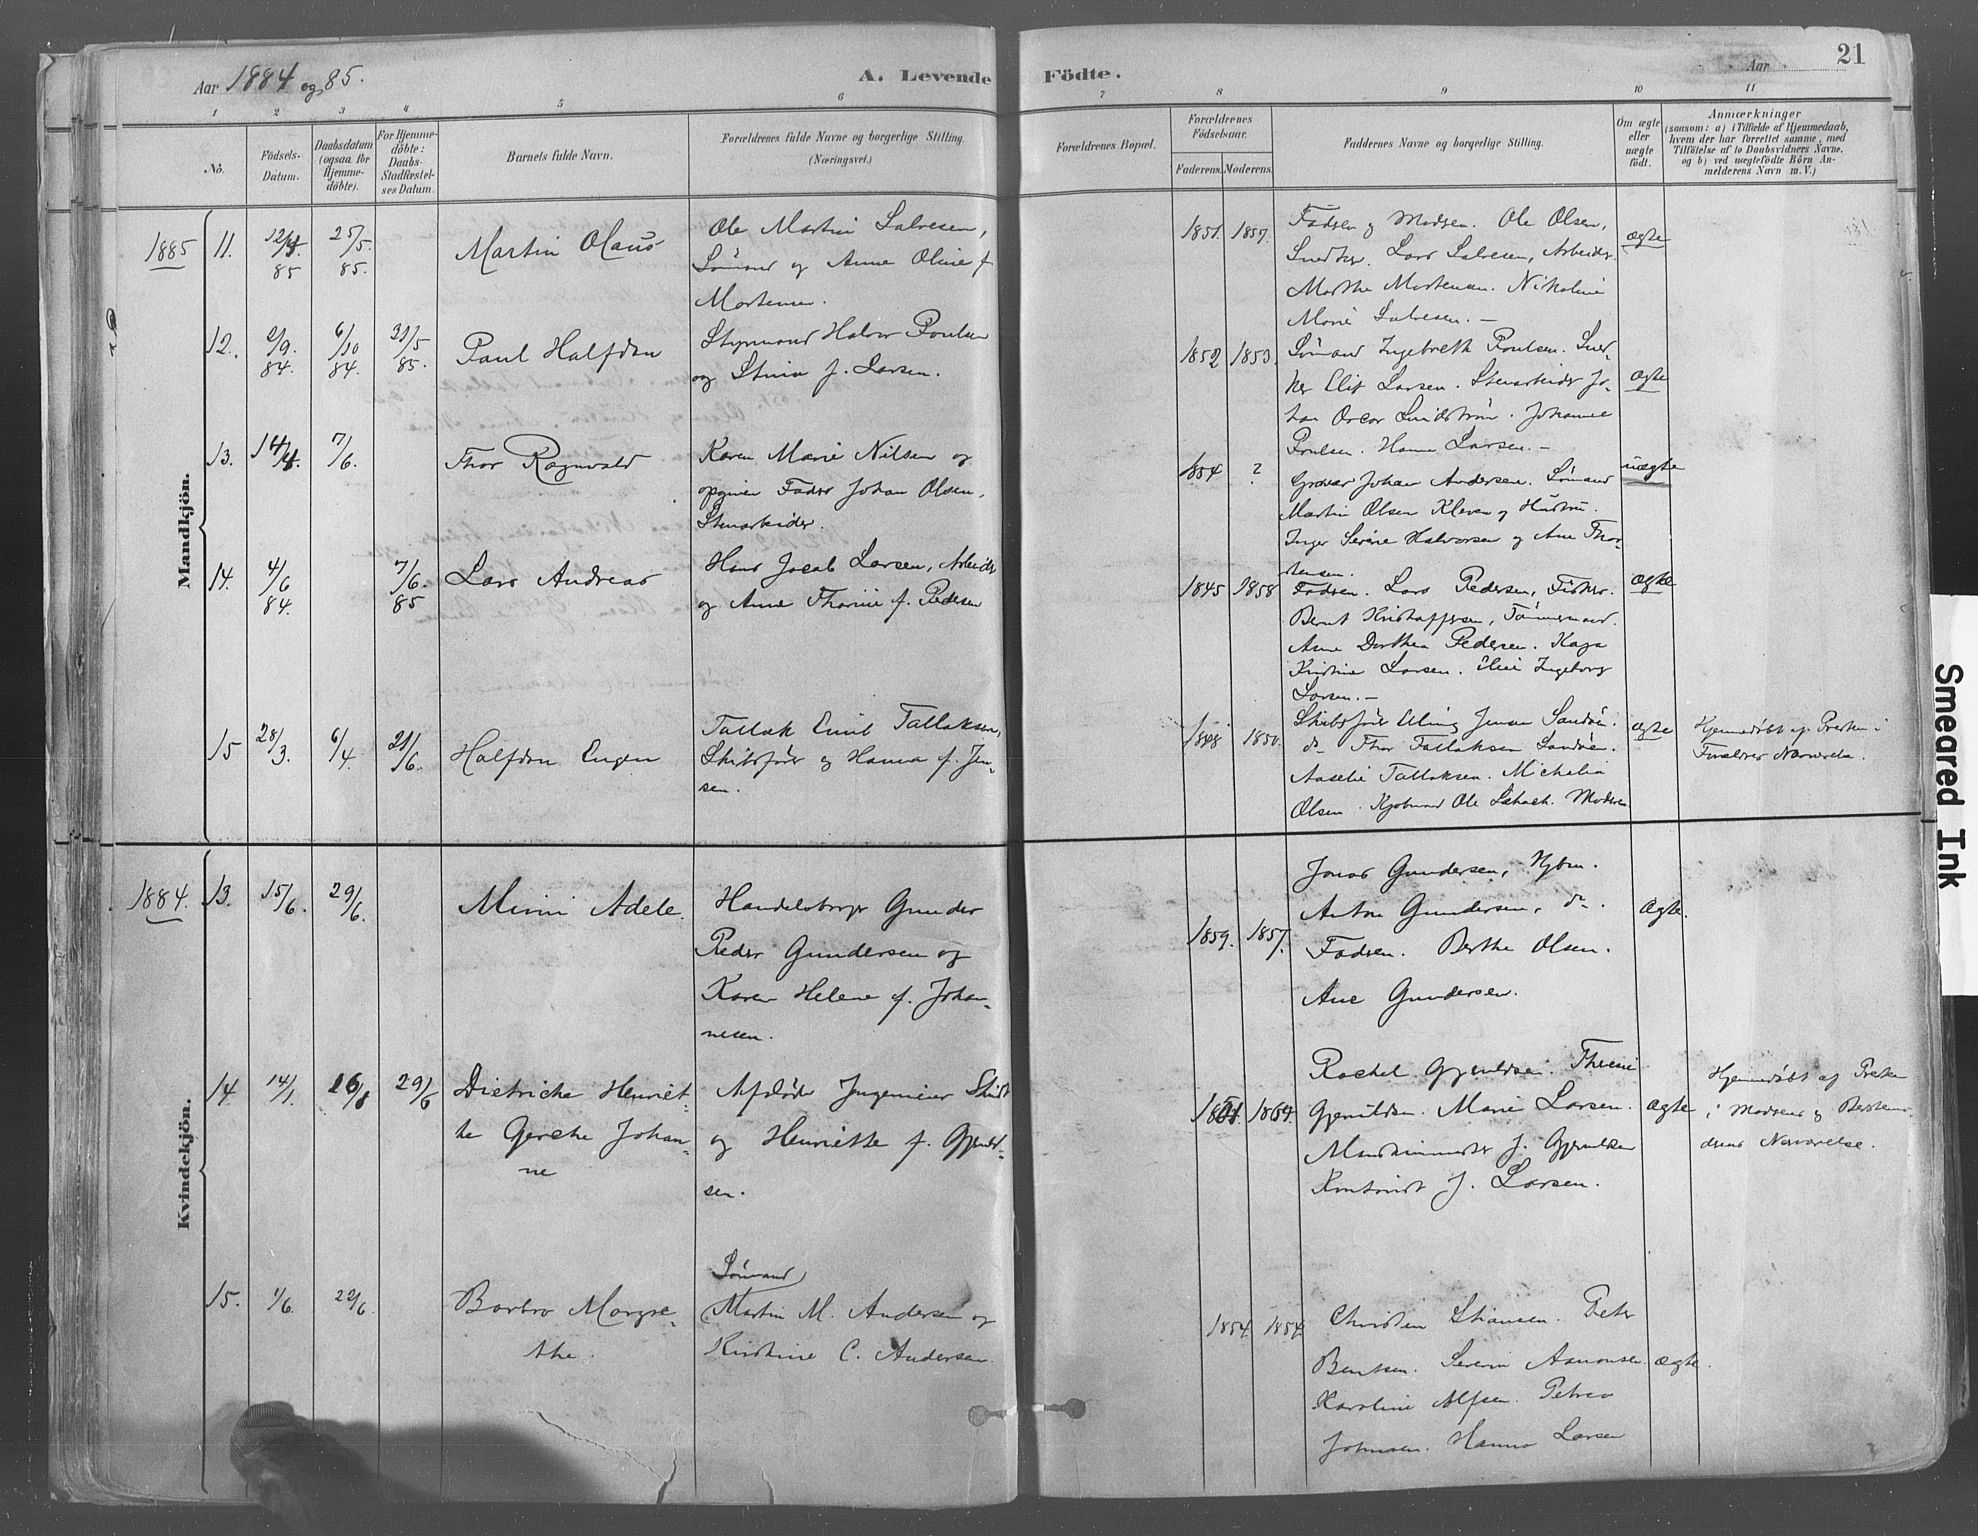 Aar 1884 og 85.
A. Levende Födte.
Aar
21
1 2 3 4 5 6 7 8 9 10 11
No.
Födsels-Datum.
Daabsdatum (ogsaa for Hjemme-döbte).
For Hjemme-döbte: Daabs-Stadfæstel-ses Datum.
Barnets fulde Navn.
Forældrenes fulde Navne og borgerlige Stilling.
(Næringsvei.)
Forældrenes Bopæl.
Forældrenes Födselsaar.
Faderens. Moderens.
Faddernes Navne og borgerlige Stilling.
Om ægte eller uægte födt.
Anmærkninger
(saasom: a) i Tilfælde af Hjemmedaab,
hvem der har forrettet samme, med
Tilföielse af to Daabsvidners Navne,
og b) ved uægtefödte Börn An-
melderens Navn m. V.)
Mandkjön.
1885 11. 12/4 85 25/5 85. Martin Olaus
Ole Martin Salvesen,
Sömand og Anne Oline f.
Mortensen.
1851. 1857.
Faderen og Moderen. Ole Olsen,
Snedker. Lars Salvesen, Arbeider.
Marthe Mortensen. Nikoline
Marie Salvesen. —
ægte
12. 2/9 84. 6/10 84. 31/5 85. Paul Halfdan
Styrmand Halvor Poulsen
og Stina f. Larsen.
1852 1853.
Sömand Ingebreth Poulsen. Sned-
ker Elif Larsen. Stenarbeider Jo-
han Oscar Lindström. Johanne
Poulsen. Hanna Larsen. —
ægte
13. 14/4. 7/6. Thor Ragnvald
Karen Marie Nilsen og
opgiven Fader Johan Olsen,
Stenarbeider.
1854 ?
Graver Johan Andersen. Sömand
Martin Olsen Kleven og Hustru.
Inger Serine Halvorsen og Ane Thor-
stensen.
uægte
14. 4/6 84. 7/6. 85 Lars Andreas
Hans Jacob Larsen, Arbeider
og Anne Thorine f. Pedersen
1845 1858
Faderen. Lars Pedersen, Fisker.
Bernt Kristoffersen, Tömmermand.
Anne Dorthea Pedersen. Kaja
Kristine Larsen. Eline Ingeborg
Larsen. —
ægte
15 28/3. 6/4. 21/6. Halfdan Eugen
Tallak Emil Tallaksen,
Skibsförer og Hanna f. Jen-
sen.
1848 1850.
Skibsförer Elling Jensen Sandöen.
do Thor Tallaksen Sandöen.
Aaselie Tallaksen. Michalia
Olsen. Kjöbmand Ole . Moderen
ægte
Hjemmedöbt af Presten i
Forældres Nærværelse.
Kvindekjön.
1884. 13. 15/6. 29/6. Mimi Adele.
Handelsborger Gunder
Peder Gundersen og
Karen Helene f. Johan-
nesen.
1859. 1857.
Jonas Gundersen, Kjbm.
Anton Gundersen, do.
Faderen. Berthe Olsen.
Ane Gundersen.
Ægte.
14 14/1. 16/1 29/6 Dietriche Henriet-
te Gerche Johan-
ne
Afdöde Ingenieur
og Henriette f. Gjeruld-
sen.
1861. 1864.
Rachel Gjeruldsen. Therese
Gjeruldsen. Marie Larsen.
Maskinmester J. Gjeruldsen
Kontorist J. Larsen.
Ægte
Hjemmedöbt af Presten
i Moderens og Bedstemo-
derens Nærværelse.
15. 1/6. 22/6. Barbro Margre-
the.
Sömand
Martin M. Andersen og
Kirstine C. Andersen.
1854. 1854.
Christen Stiansen. Peter
Bentsen. Severin Aanonsen.
Karoline Alfsen. Petrea
Johnsen. Hanna Larsen
ægte.
Smeared Ink